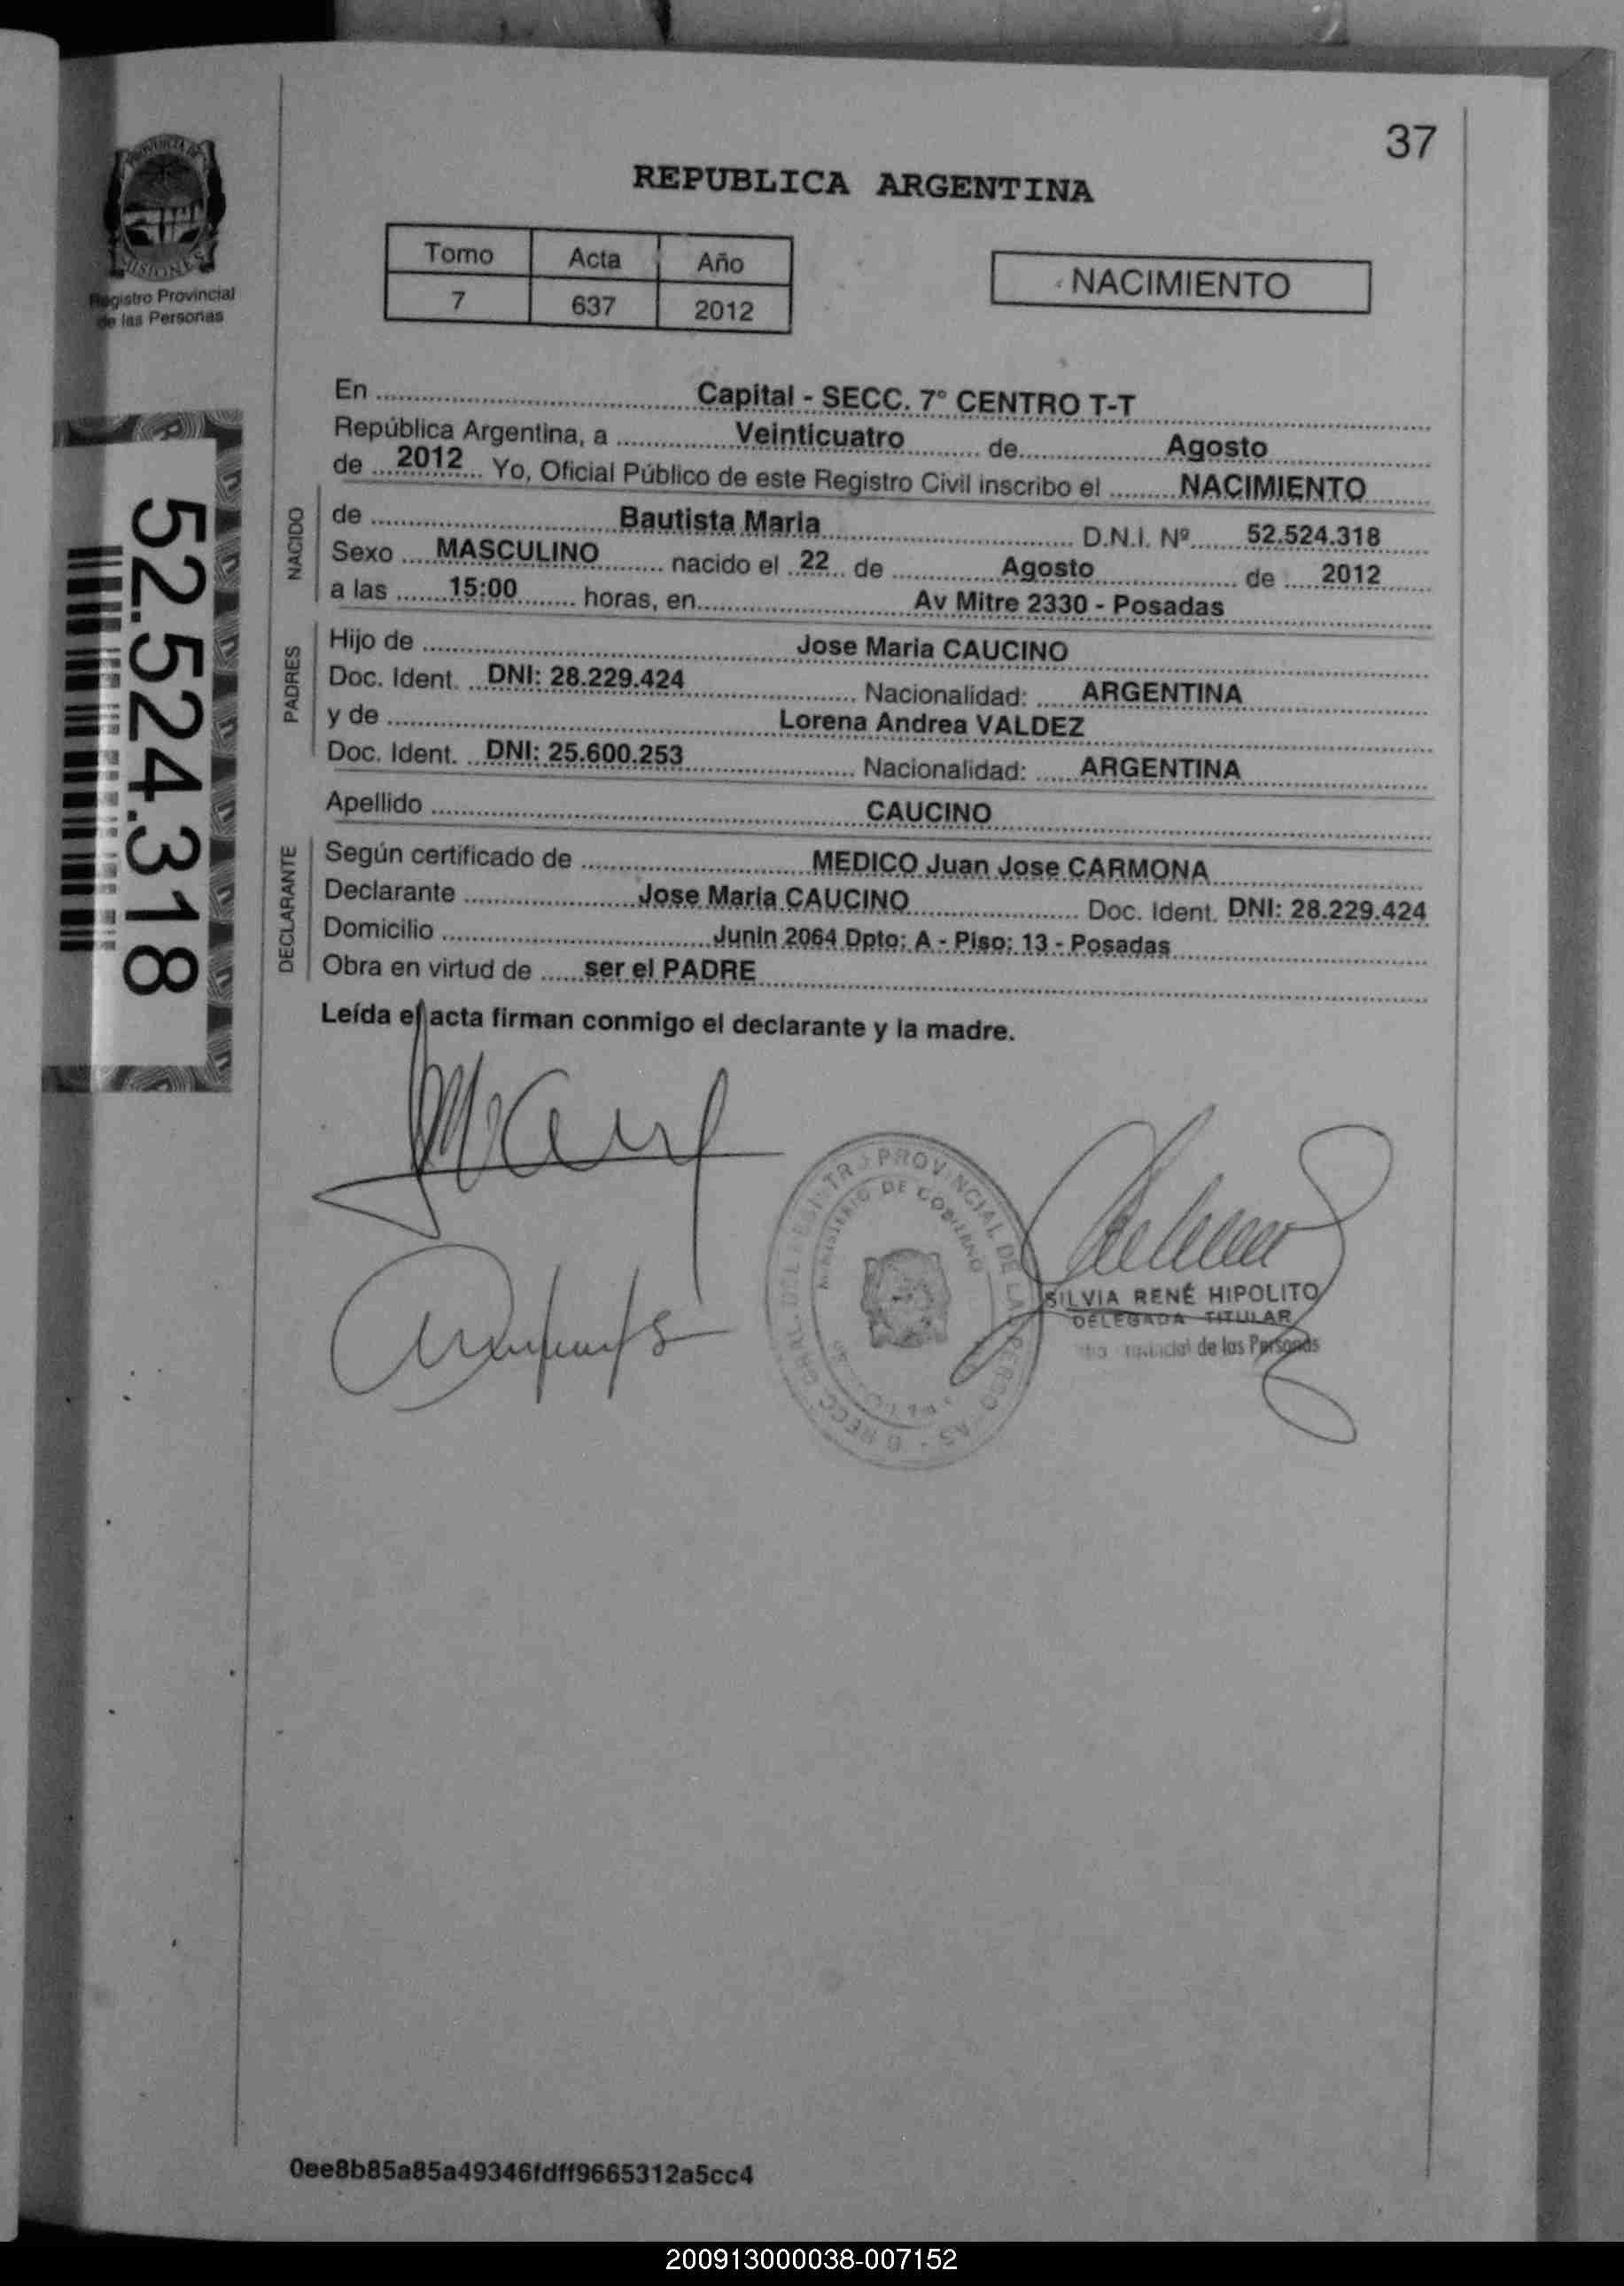 37
PROVINCIA DE
MISIONES
Registro Provincial
de las Personas
REPUBLICA ARGENTINA
Tomo Acta Año
7 637 2012
NACIMIENTO
52.524.318
En Capital - SECC. 7° CENTRO T-T
República Argentina, a Veinticuatro de Agosto
de 2012 Yo, Oficial Público de este Registro Civil inscribo el NACIMIENTO
NACIDO
de Bautista Maria D.N.I. Nº 52.524.318
Sexo MASCULINO nacido el 22 de Agosto de 2012
a las 15:00 horas, en Av Mitre 2330 - Posadas
PADRES
Hijo de Jose Maria CAUCINO
Doc. Ident. DNI: 28.229.424 Nacionalidad: ARGENTINA
y de Lorena Andrea VALDEZ
Doc. Ident. DNI: 25.600.253 Nacionalidad: ARGENTINA
Apellido CAUCINO
DECLARANTE
Según certificado de MEDICO Juan Jose CARMONA
Declarante Jose Maria CAUCINO Doc. Ident. DNI: 28.229.424
Domicilio Junin 2064 Dpto: A - Piso: 13 - Posadas
Obra en virtud de ser el PADRE
Leída el acta firman conmigo el declarante y la madre.
PROVINCIAL DE LAS
MINISTERIO DE GOBIERNO
SILVIA RENÉ HIPOLITO
DELEGADA TITULAR
de las Personas
0ee8b85a85a49346fdff9665312a5cc4
200913000038-007152